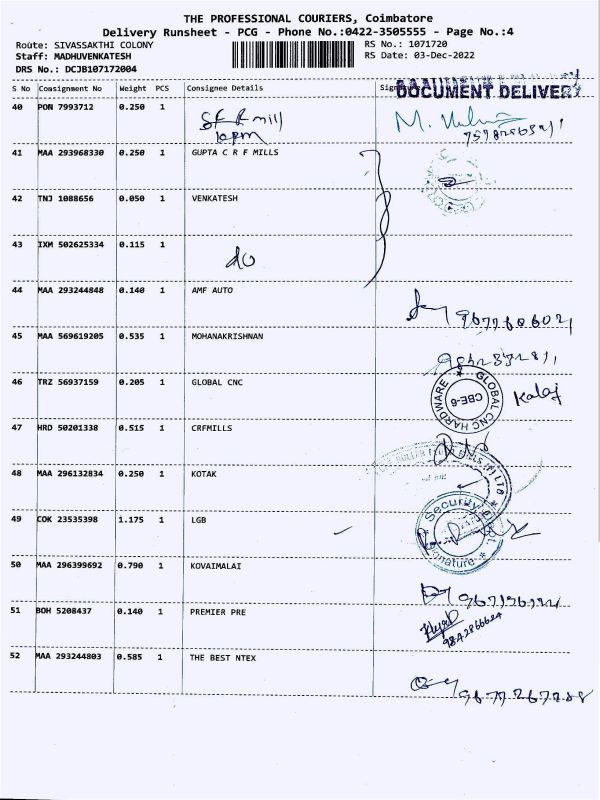 THE PROFESSIONAL COURIERS, Coimbatore
Delivery Runsheet - PCG - Phone No.:0422-3505555 - Page No.:4
Route: SIVASSAKTHI COLONY RS No.: 1071720
Staff: MADHUVENKATESH RS Date: 03-Dec-2022
DRS No.: DCJB107172004
S No Consignment No Weight PCS Consignee Details
DOCUMENT DELIVERY
40 PON 7993712 0.250 1 mill
41 MAA 293968330 0.250 1 GUPTA C R F MILLS
42 TNJ 1088656 0.050 1 VENKATESH
43 IXM 502625334 0.115 1 do
44 MAA 293244848 0.140 1 AMF AUTO
45 MAA 569619205 0.535 1 MOHANAKRISHNAN
46 TRZ 56937159 0.205 1 GLOBAL CNC
GLOBAL CNC HARDWARE CBE-6
47 HRD 50201338 0.515 1 CRFMILLS
48 MAA 296132834 0.250 1 KOTAK
49 COK 23535398 1.175 1 LGB
Security
Signature
50 MAA 296399692 0.790 1 KOVAIMALAI
51 BOH 5208437 0.140 1 PREMIER PRE
52 MAA 293244803 0.585 1 THE BEST NTEX